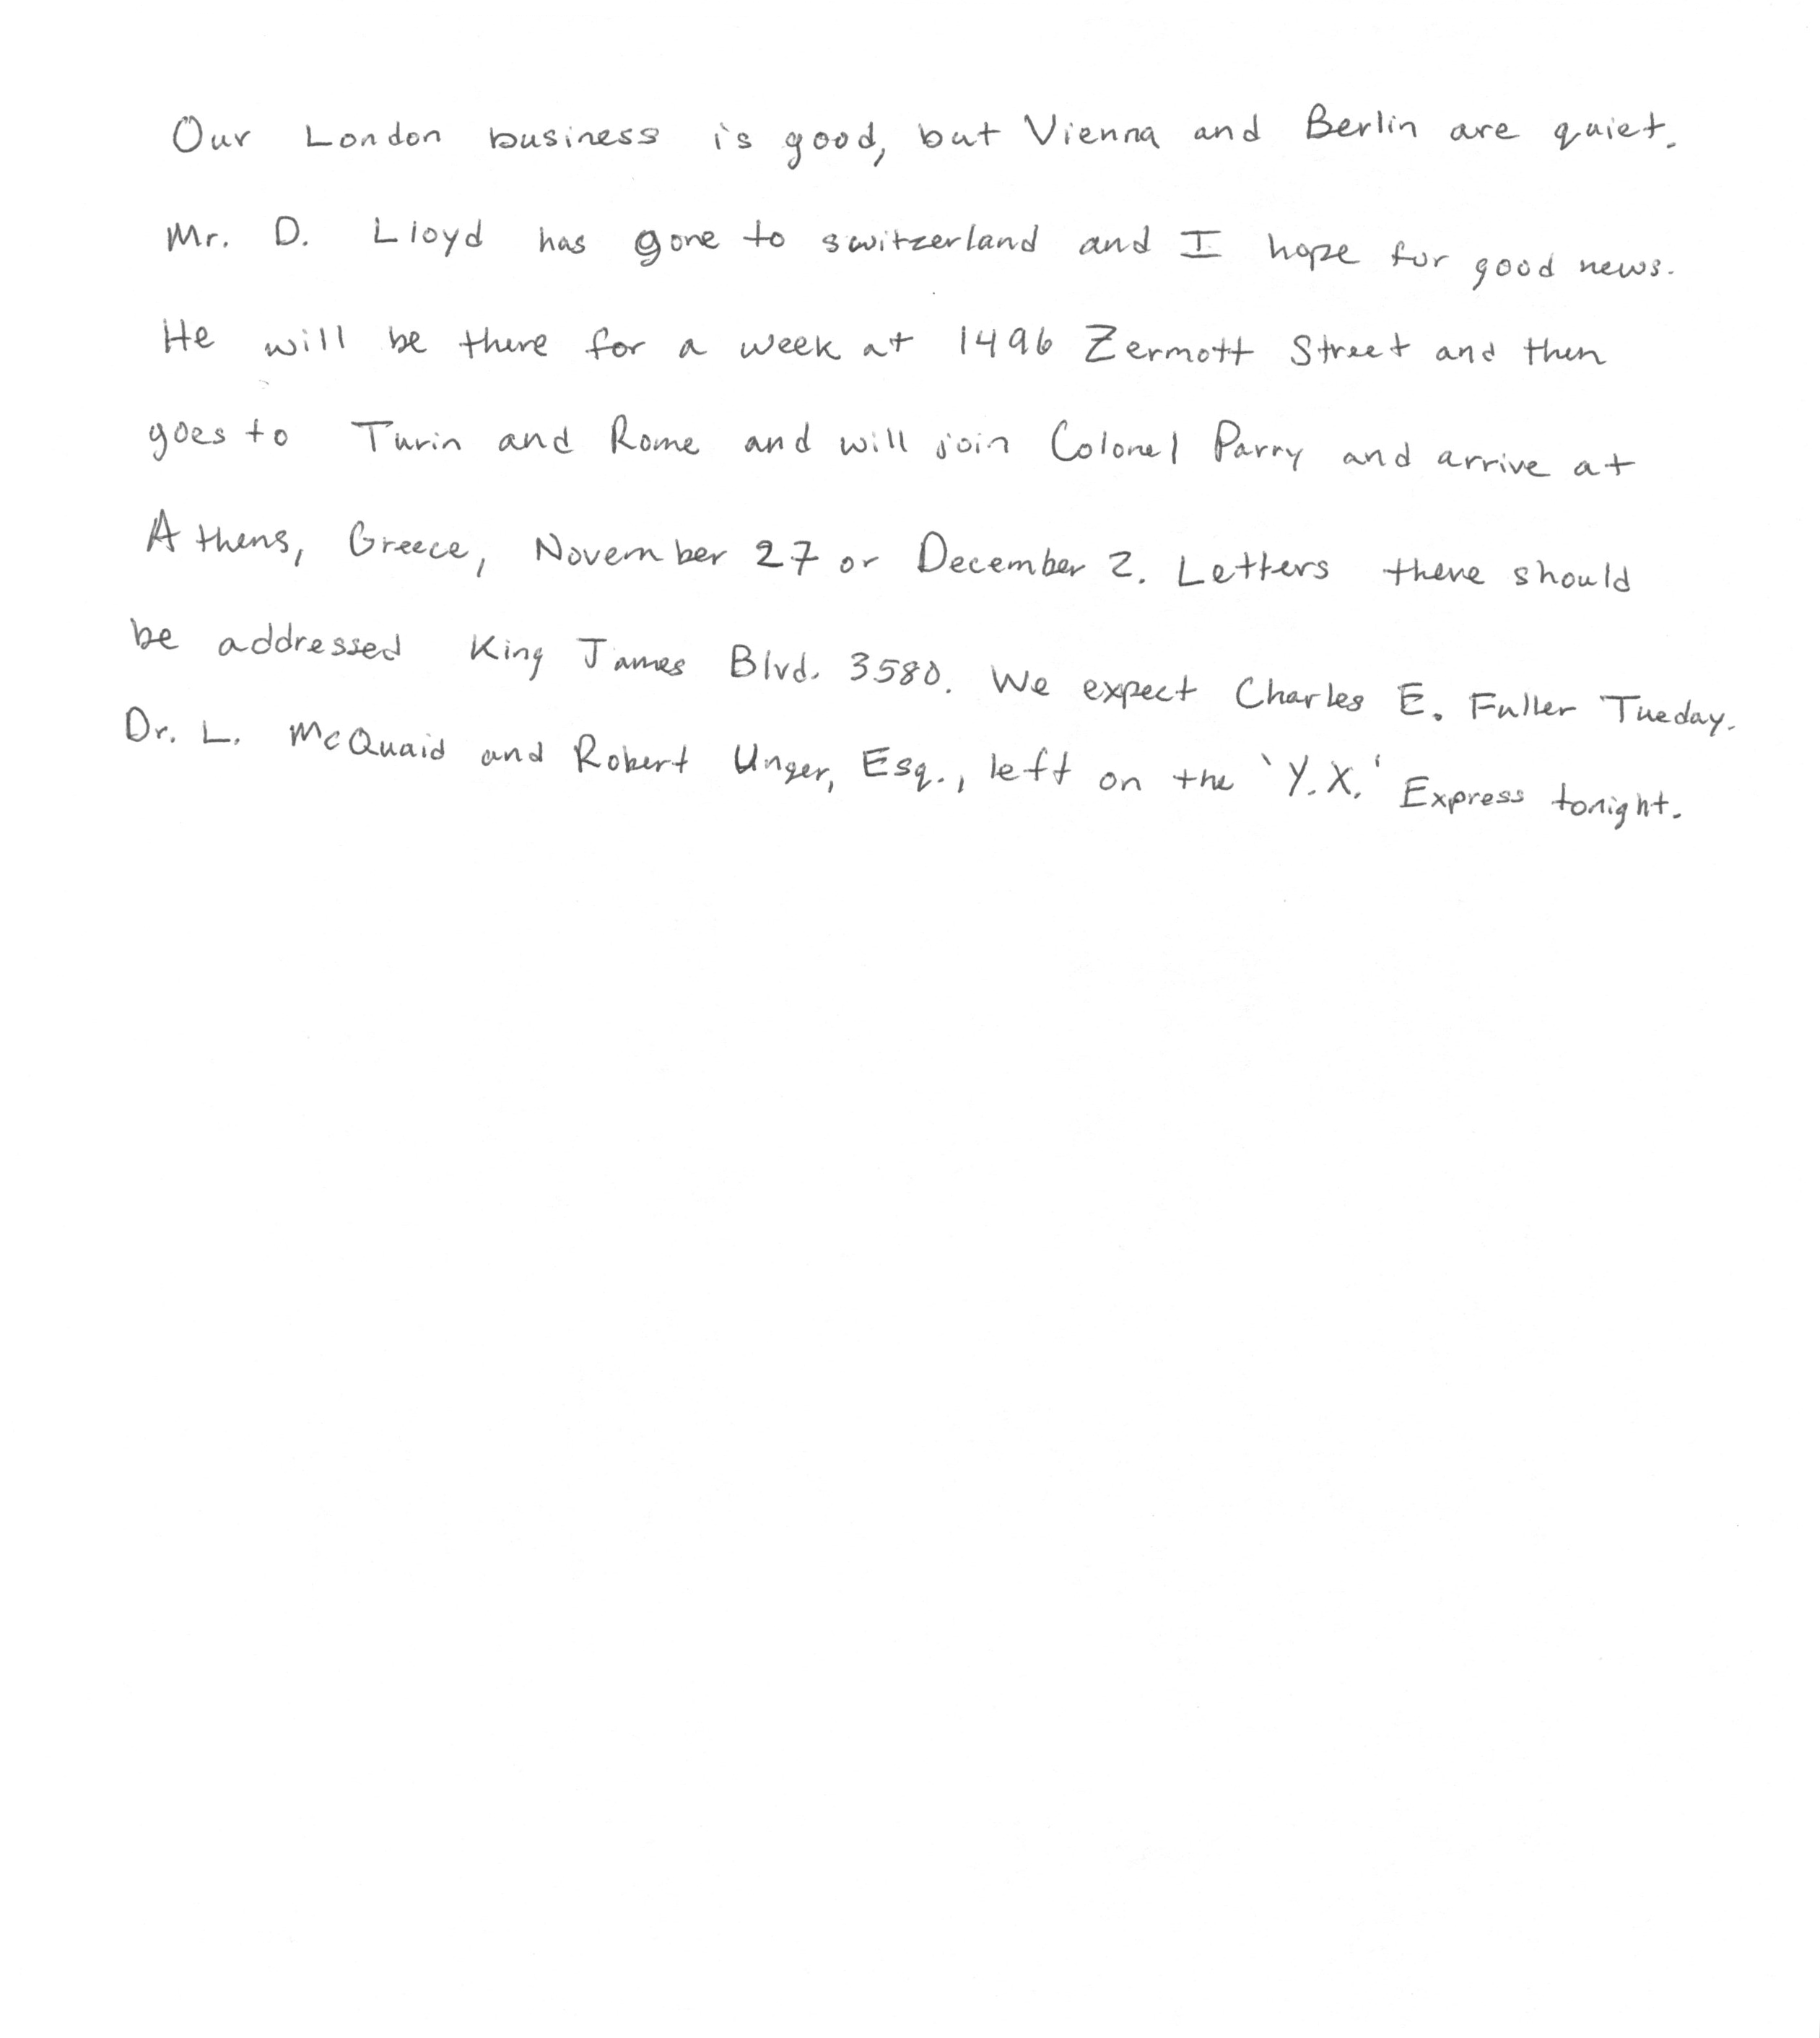 Our London business is good, but Vienna and Berlin are quiet.
Mr. D. Lloyd has gone to switzerland and I hope for good news.
He will be there for a week at 1496 Zermott Street and then
goes to Turin and Rome and will join Colonel Parry and arrive at
Athens, Greece, November 27 or December 2. Letters there should
be addressed King James Blvd. 3580. We expect Charles E. Fuller Tueday.
Dr. L. McQuaid and Robert Unger, Esq., left on the 'Y.X.' Express tonight.